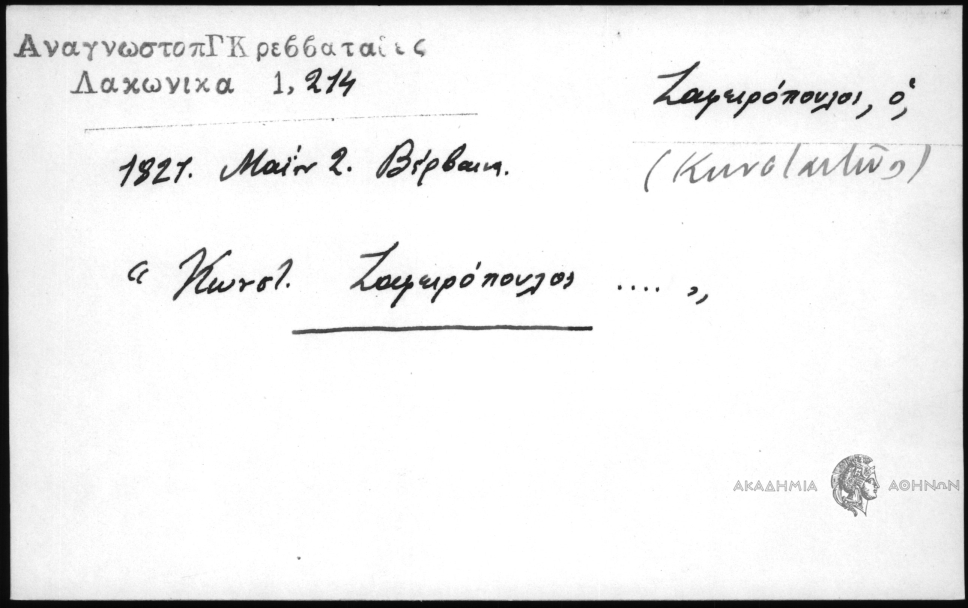 ΑναγνωστοπΓΚρεββαταδες
Λακωνικα 1, 214
Ζαφειρόπουλος, ὁ,
1821. Μαΐου 2. Βέρβαινα.
(Κωνσταντῖνος)
“ Κωνστ. Ζαφειρόπουλος .... „
ΑΚΑΔΗΜΙΑ ΑΘΗΝΩΝ